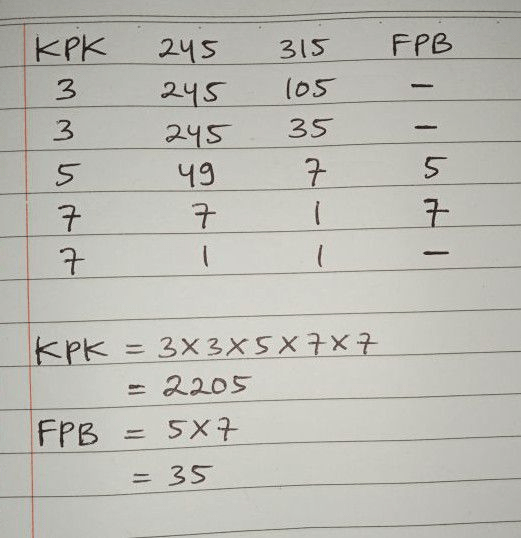 KPK 245 315 FPB
3 245 105 -
3 245 35 -
5 49 7 5
7 7 1 7
7 1 1 -
KPK = 3×3×5×7×7
= 2205
FPB = 5×7
= 35